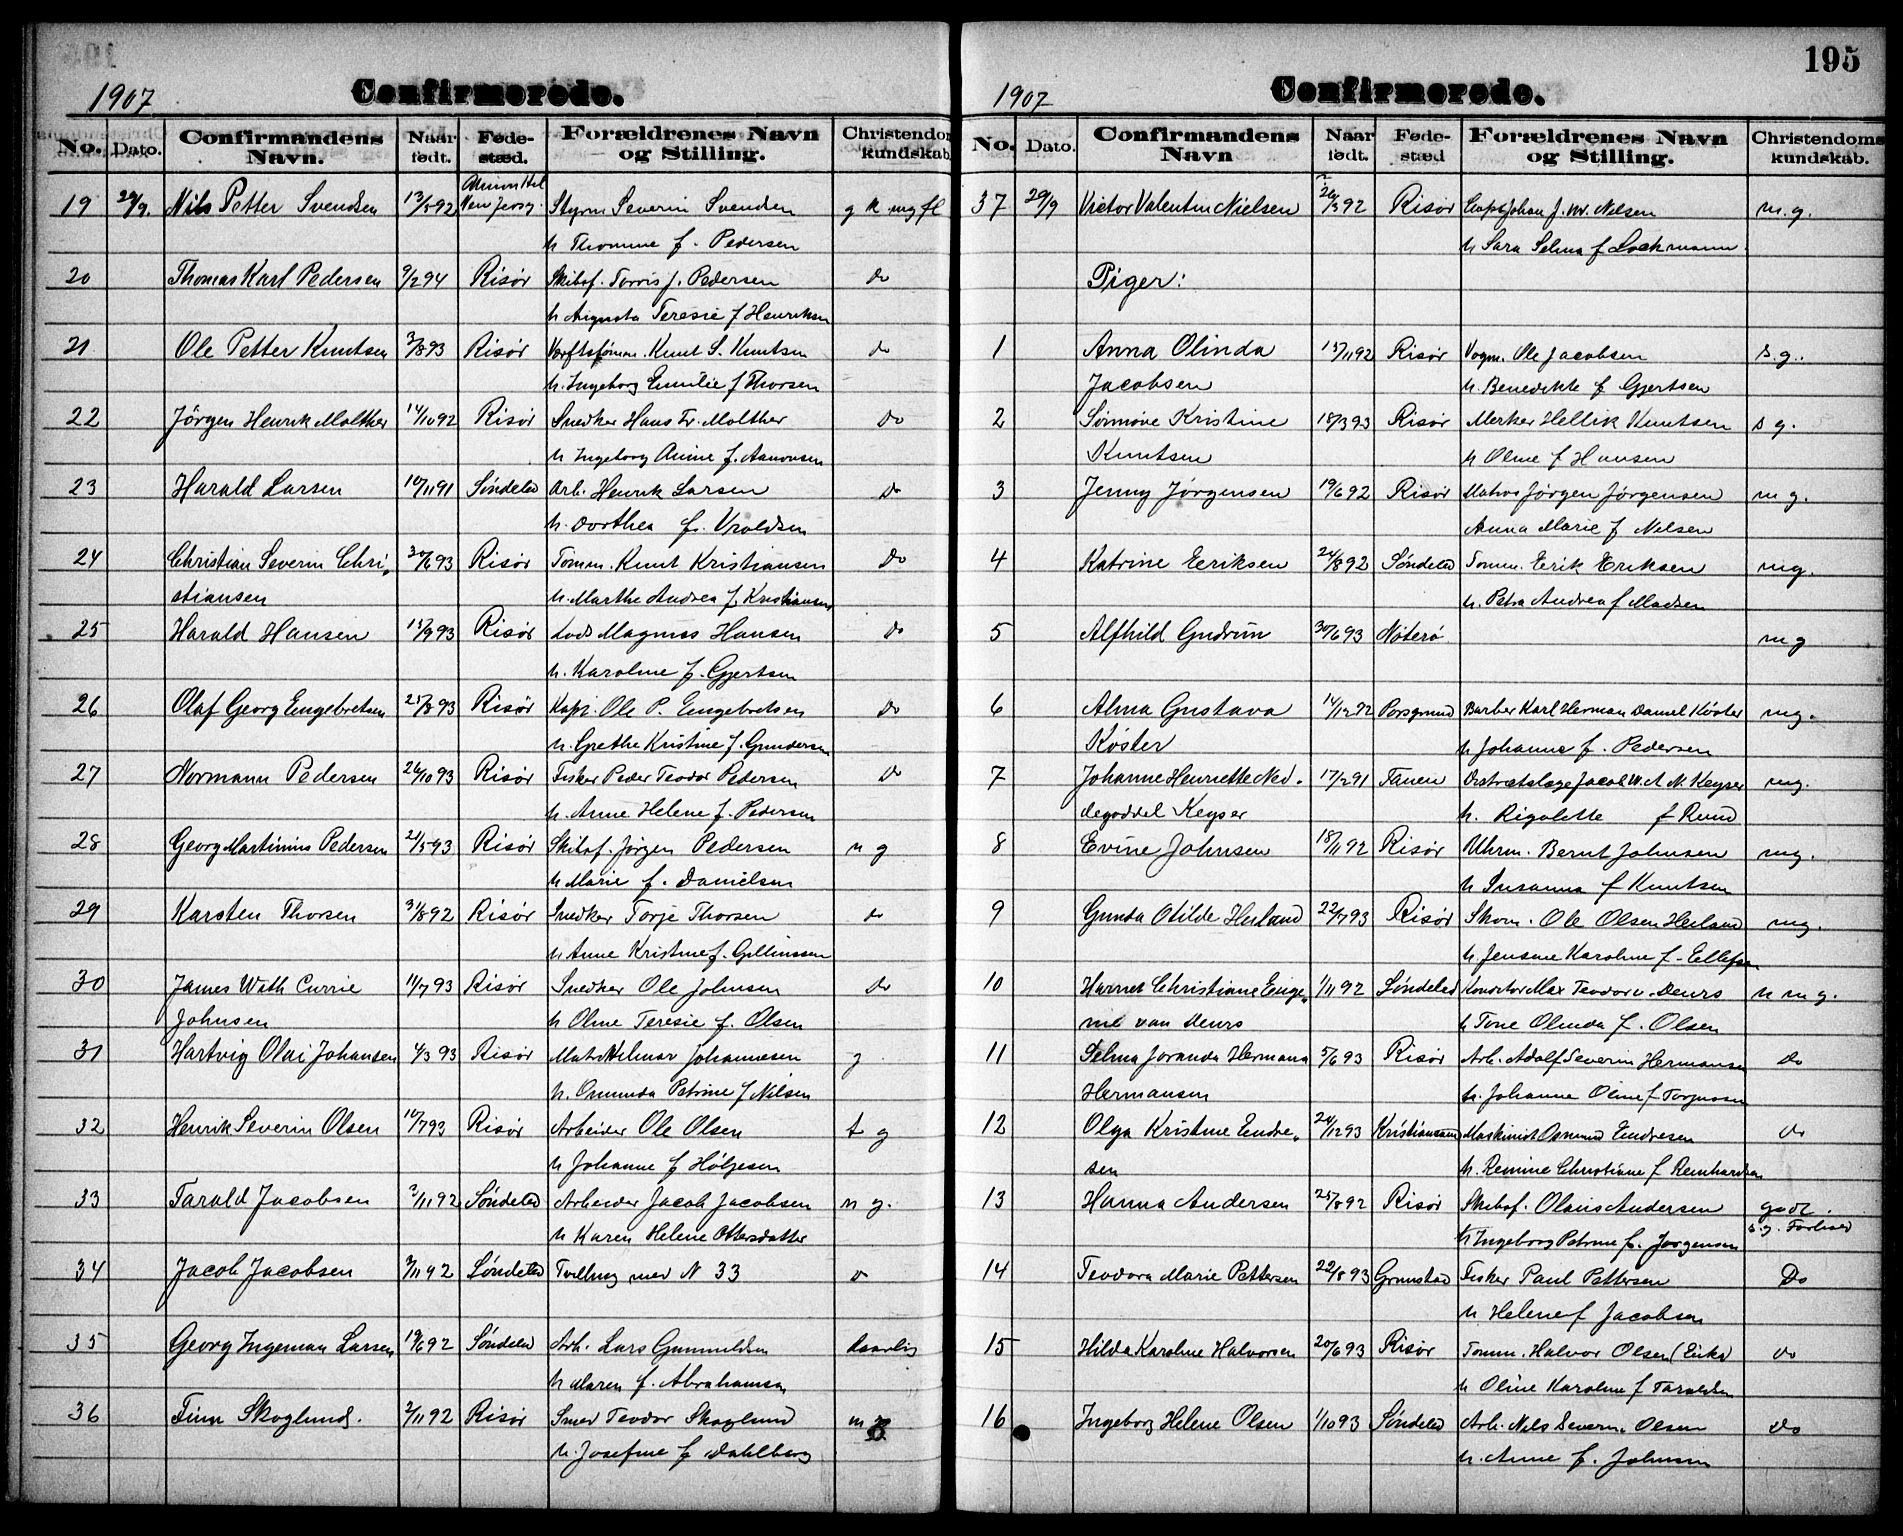 1907
Confirmerede.
No. Dato. Confirmandens Navn. Naar født. Fødested. Forældrenes Navn og Stilling. Christendomskundskab.
19 29/9. Nils Petter Svendsen 13/5 92 New Jersey Styrm Severin Svendsen g
h Thomine f. Pedersen
20 Thomas Karl Pedersen 9/2 94 Risør Skibsf. Torris J. Pedersen do
h Augusta Teresie f Henriksen
21 Ole Petter Knutsen 3/8 93 Risør Værftsfomm. Knut S. Knutsen do
h. Ingeborg Emilie f Thorsen
22 Jörgen Henrik Molther 14/10 92 Risør Snedker Hans Fr. Molther do
h Ingeborg Anine f. Aanonsen
23 Harald Larsen 10/11 91 Søndeled Arb. Henrik Larsen do
h. Dorthea f. Vroldsen
24 Christian Severin Chri„ 30/6 93 Risør Tömm. Knut Kristiansen do
stiansen h. Marthe Andrea f. Kristiansen
25 Harald Hansen 15/9 93 Risør Lods Magnus Hansen do
h. Karoline f. Gjertsen
26 Olaf Georg Engebretsen 25/8 93 Risør Kapt. Ole P. Engebretsen do
h. Grethe Kristine f. Gundersen
27 Normann Pedersen 26/10 93 Risør Fisker Peder Teodor Pedersen do
h. Anne Helene f. Pedersen
28 Georg Martinius Pedersen 21/5 93 Risør Skibsf. Jörgen Pedersen n g
h Marie f. Danielsen
29 Karsten Thorsen 31/8 92 Risør Snedker Torje Thorsen do
h Anne Kristine f.
30 James Wath Currie 11/7 93 Risør Snedker Ole Johnsen do
Johnsen h Oline Teresie f. Olsen
31 Hartvig Olai Johansen 4/3 93 Risør Matr Hilmar Johannesen g
h. Osmunda Petrine f Nilsen
32 Henrik Severin Olsen 10/7 93 Risør Arbeider Ole Olsen t g
h Johanne f Höljesen
33 Tarald Jacobsen 3/11 92 Søndeled Arbeider Jacob Jacobsen n g.
h Karen Helene Ottersdatter
34 Jacob Jacobsen 3/11 92 Søndeled Tvilling med N 33
35 Georg Ingeman Larsen 19/6 92 Søndeled Arb. Lars Gunnuldsen daarlig
h Maren f. Abrahamsen
36 Finn Skoglund. 2/11 92 Risør Smed Teodor Skoglund m
h. Josefine f Dahlberg
195
1907
Confirmerede.
No. Dato. Confirmandens Navn Naar født. Fødested Forældrenes Navn og Stilling. Christendomskundskab.
37 29/9 Victor Valentin Nielsen 26/3 92 Risør Johan J. Nilsen m.g.
h Sara Selma f Lochmann
Piger:
1 Anna Olinda 15/11 92 Risør Vogm. Ole Jacobsen s.g.
Jacobsen h. Benedikte f Gjertsen
2 Sönnöve Kristine 18/3 93 Risør Merker Hellik Knutsen s g.
Knutsen h Oline f Hansen
3 Jenny Jörgensen 19/6 92 Risør Matros Jörgen Jörgensen m g.
Anna Marie f Nilsen
4 Katrine Eriksen 24/8 92 Søndeled Tömm. Erik Eriksen mg.
h. Petra Andrea f Madsen
5 Alfhild Gudrun 30/6 93 Nøterø m g
6 Alma Gustava 14/12 92 Porsgrund Barber Karl Herman Daniel Köster mg.
Köster h Johanne f. Pedersen
7 Johanne Henriette Ned- 17/2 91 Fanen Distrætslæge Jacob W. A. M. Keyser mg.
degoddel Keyser h. Rigolette f Rund
8 Evine Johnsen 18/11 92 Risør Uhrm. Bernt Johnsen mg.
h Susanna f Knutsen
9 Gunda Otilde Heiland 22/7 93 Risør Skom. Ole Olsen Heiland mg.
h. Jensine Karoline f. Ellefsen
10 Harriet Christiane Euge„ 1/11 92 Søndeled Konditor Max Teodor v. Deurs n m g.
nie van Deurs h Tone Olinda f. Olsen
11 Selma Joranda Hermana 5/6 93 Risør Arb. Adolf Severin Hermansen do
Hermansen h. Johanne Oline f Torjusen
12 Olga Kristine Endre„ 24/12 93 Kristiansand Maskinist Osmund Endresen do
sen h. Remine Christiane f Reinhardsen
13 Hanna Andersen 25/8 92 Risør Skibsf. Olaus Andersen godt.
h Ingeborg Petrine f. Jørgensen s.g. Forhold
14 Teodora Marie Pettersen 22/8 93 Grimstad Fisker Paul Pettersen Do
h Helene f Jacobsen
15 Hilda Karoline Halvorsen 20/6 93 Risør Tömm. Halvor Olsen do
h Oline Karoline f Taraldsen
16 Ingeborg Helene Olsen 1/10 93 Søndeled Arb. Nils Severin Olsen do
h. Anne f. Johnsen